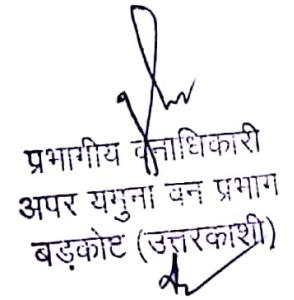 प्रभागीय वनाधिकारी
अपर यमुना वन प्रभाग
बड़कोट (उत्तरकाशी)